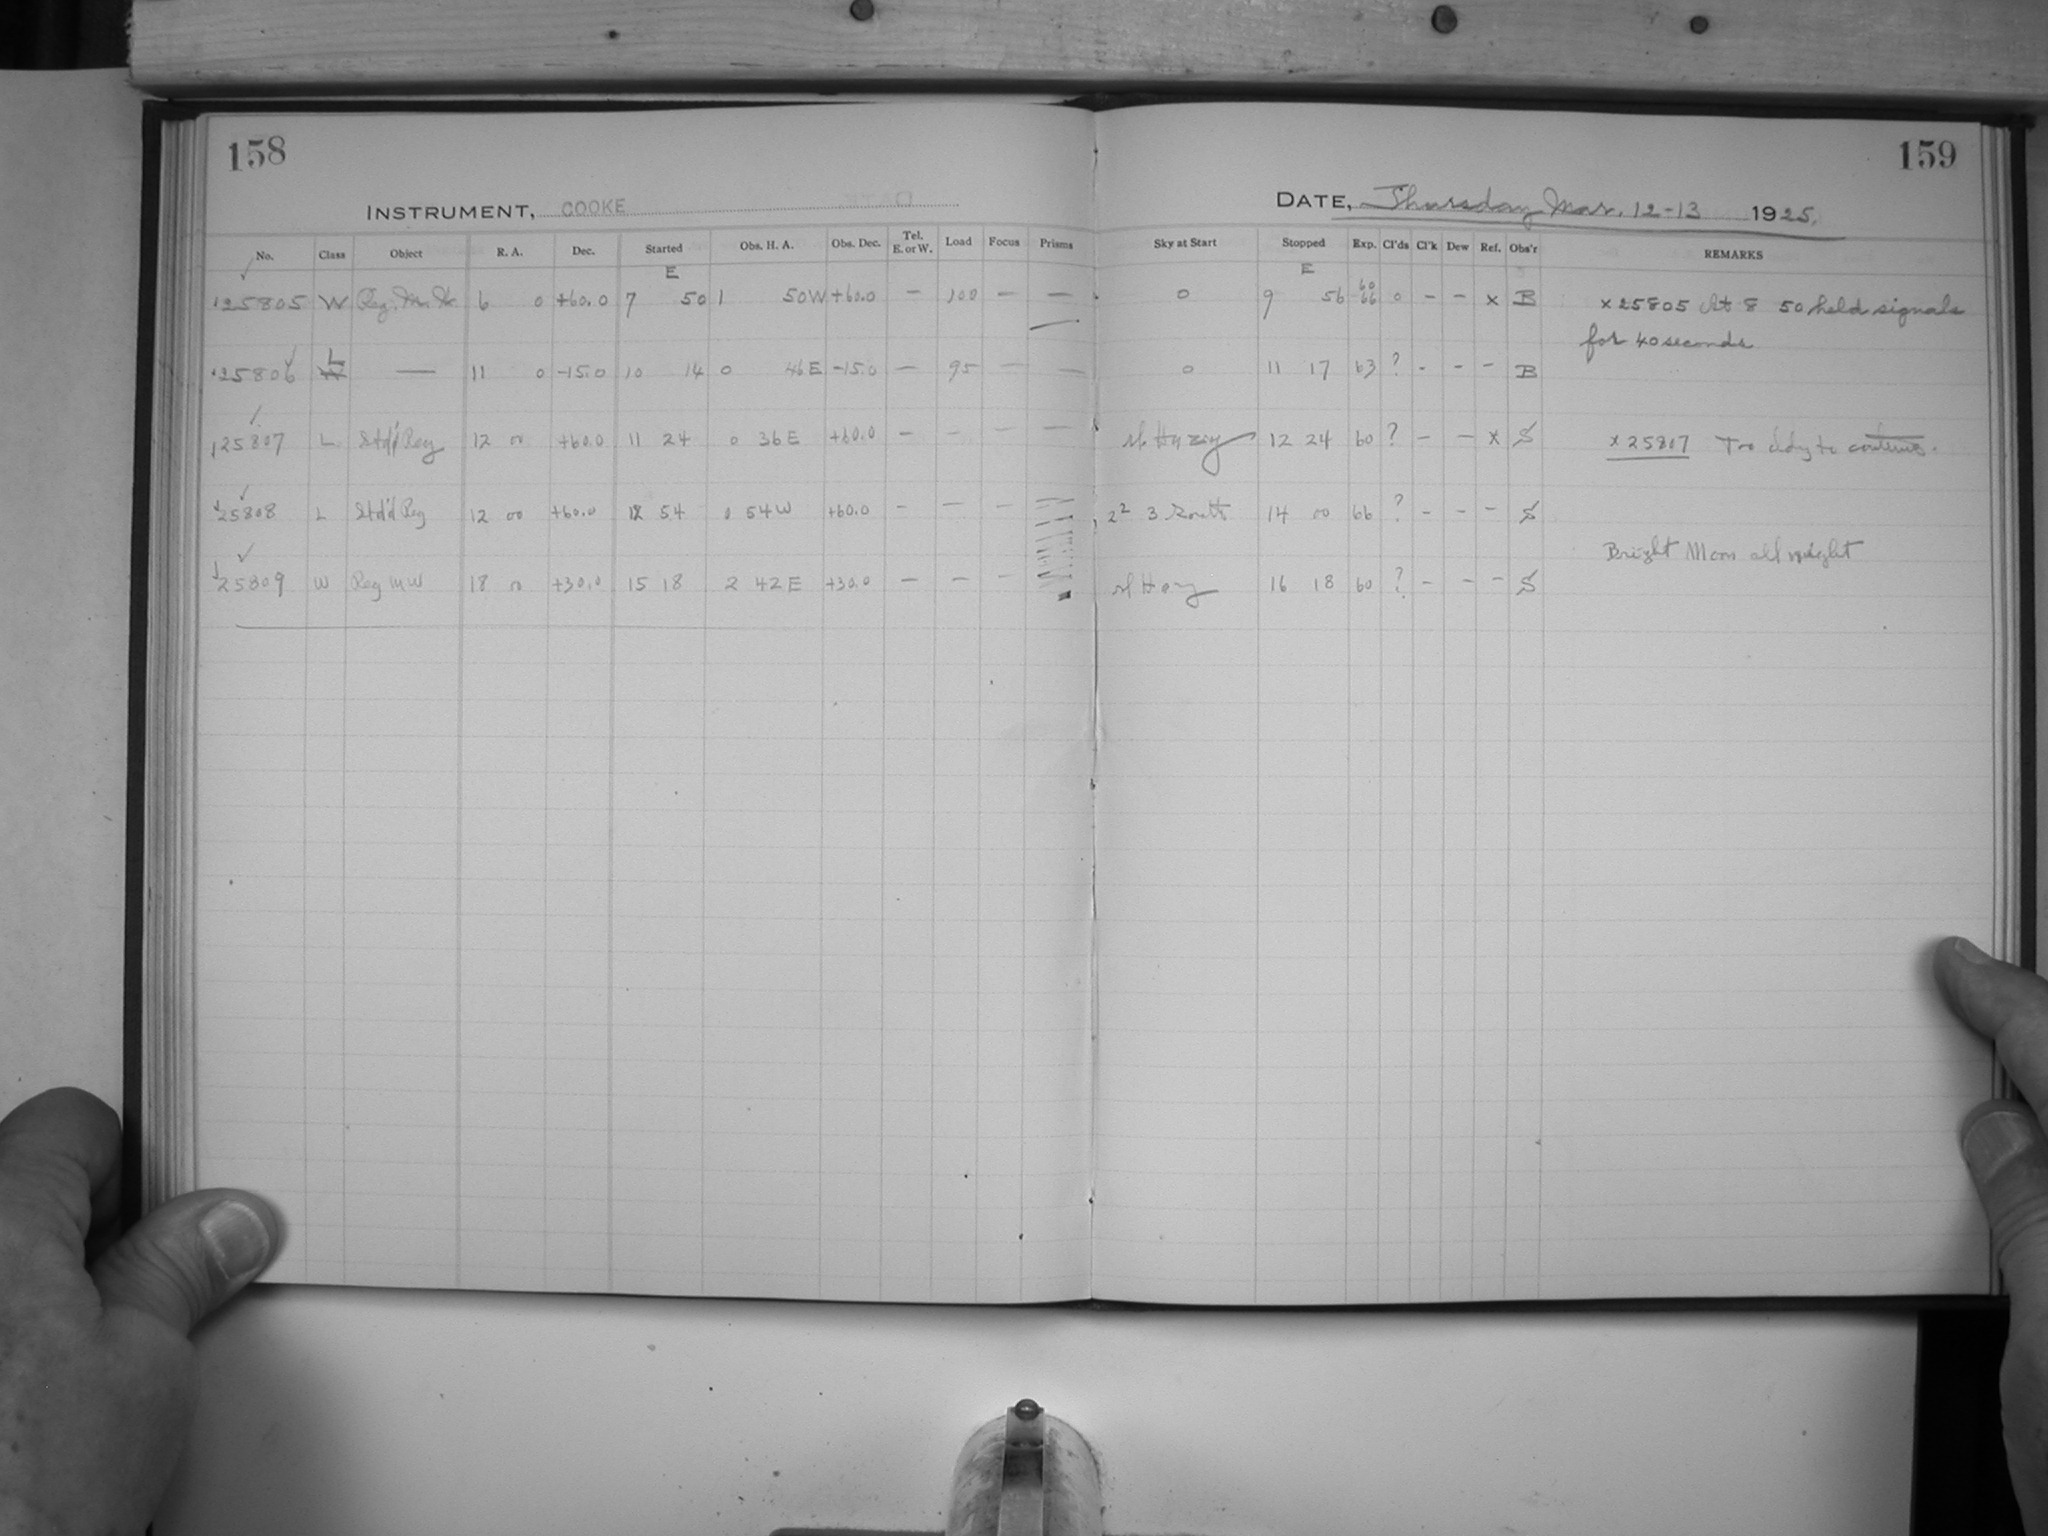 158
159
INSTRUMENT, COOKE
DATE, Thursday Mar. 12-13 1925.
No. Class Object R. A. Dec. Started Obs. H. A. Obs. Dec. Tel. E. or W. Load Focus Prisms Sky at Start Stopped Exp. Cl'ds Cl'k Dew Ref. Obs'r REMARKS
E E
25805 W Reg. M. W. 6 0 +60.0 7 50 1 50W +60.0 — 100 — — 0 9 56 60 66 0 - - x B x 25805 At 8 50 held signals
for 40 seconds
25806 L W — 11 0 -15.0 10 14 0 46E -15.0 — 95 — — 0 11 17 63 ? - - - B
25807 L Std'd Reg 12 00 +60.0 11 24 0 36E +60.0 — — — 12 24 60 ? - - x S x 25807 Too cldy to continue.
25808 L Std'd Reg 12 00 +60.0 12 54 0 54W +60.0 — — — 2² 3 South 14 00 66 ? - - - S
Bright Moon all night
25809 W Reg MW 18 00 +30.0 15 18 2 42E +30.0 — — — 16 18 60 ? - - - S